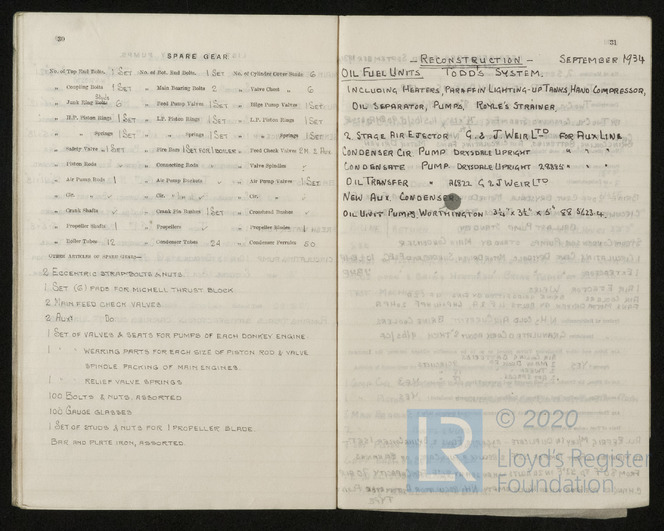 30
SPARE GEAR
No. of Top End Bolts. 1 SET No. of Bot. End Bolts. 1 SET No. of Cylinder Cover Studs 6
" Coupling Bolts 1 SET " Main Bearing Bolts 2 " Valve Chest " 6
" Junk Ring Studs 6 " Feed Pump Valves 1 SET " Bilge Pump Valves 1 SET
" H.P. Piston Rings 1 SET " I.P. Piston Rings 1 SET " L.P. Piston Rings 1 SET
" " Springs 1 SET " " Springs 1 SET " " Springs 1 SET
" Safety Valve " 1 SET " Fire Bars 1 SET FOR 1 BOILER " Feed Check Valves 2 M. 2 AUX
" Piston Rods " Connecting Rods " Valve Spindles
" Air Pump Rods 1 " Air Pump Buckets " Air Pump Valves 1 SET
" Cir. " " Cir. " " Cir. "
" Crank Shafts " Crank Pin Bushes 1 SET " Crosshead Bushes
" Propeller Shafts 1 " Propellers " Propeller Blades 1
" Boiler Tubes 12 " Condenser Tubes 24 " Condenser Ferrules 50
OTHER ARTICLES OF SPARE GEAR:—
2 ECCENTRIC STRAP BOLTS & NUTS
1 SET (6) PADS FOR MICHELL THRUST BLOCK
2 MAIN FEED CHECK VALVES
2 AUX. DO
1 SET OF VALVES & SEATS FOR PUMPS OF EACH DONKEY ENGINE
1 " " WEARING PARTS FOR EACH SIZE OF PISTON ROD & VALVE
SPINDLE PACKING OF MAIN ENGINES.
1 " " RELIEF VALVE SPRINGS
100 BOLTS & NUTS, ASSORTED
100 GAUGE GLASSES
1 SET OF STUDS & NUTS FOR 1 PROPELLER BLADE
BAR AND PLATE IRON, ASSORTED.
31
— RECONSTRUCTION — SEPTEMBER 1934
OIL FUEL UNITS TODD'S SYSTEM.
INCLUDING HEATERS, PARAFFIN LIGHTING-UP TANKS, HAND COMPRESSOR,
OIL SEPARATOR, PUMPS, ROYLE'S STRAINER.
2 STAGE AIR EJECTOR G. & J. WEIR LTD FOR AUX LINE
CONDENSER CIR PUMP DRYSDALE UPRIGHT " " "
CONDENSATE PUMP DRYSDALE UPRIGHT " " "
OIL TRANSFER " G & J WEIR LTD
NEW AUX. CONDENSER
OIL UNIT PUMPS WORTHINGTON
© 2020
LR
Lloyd's Register
Foundation